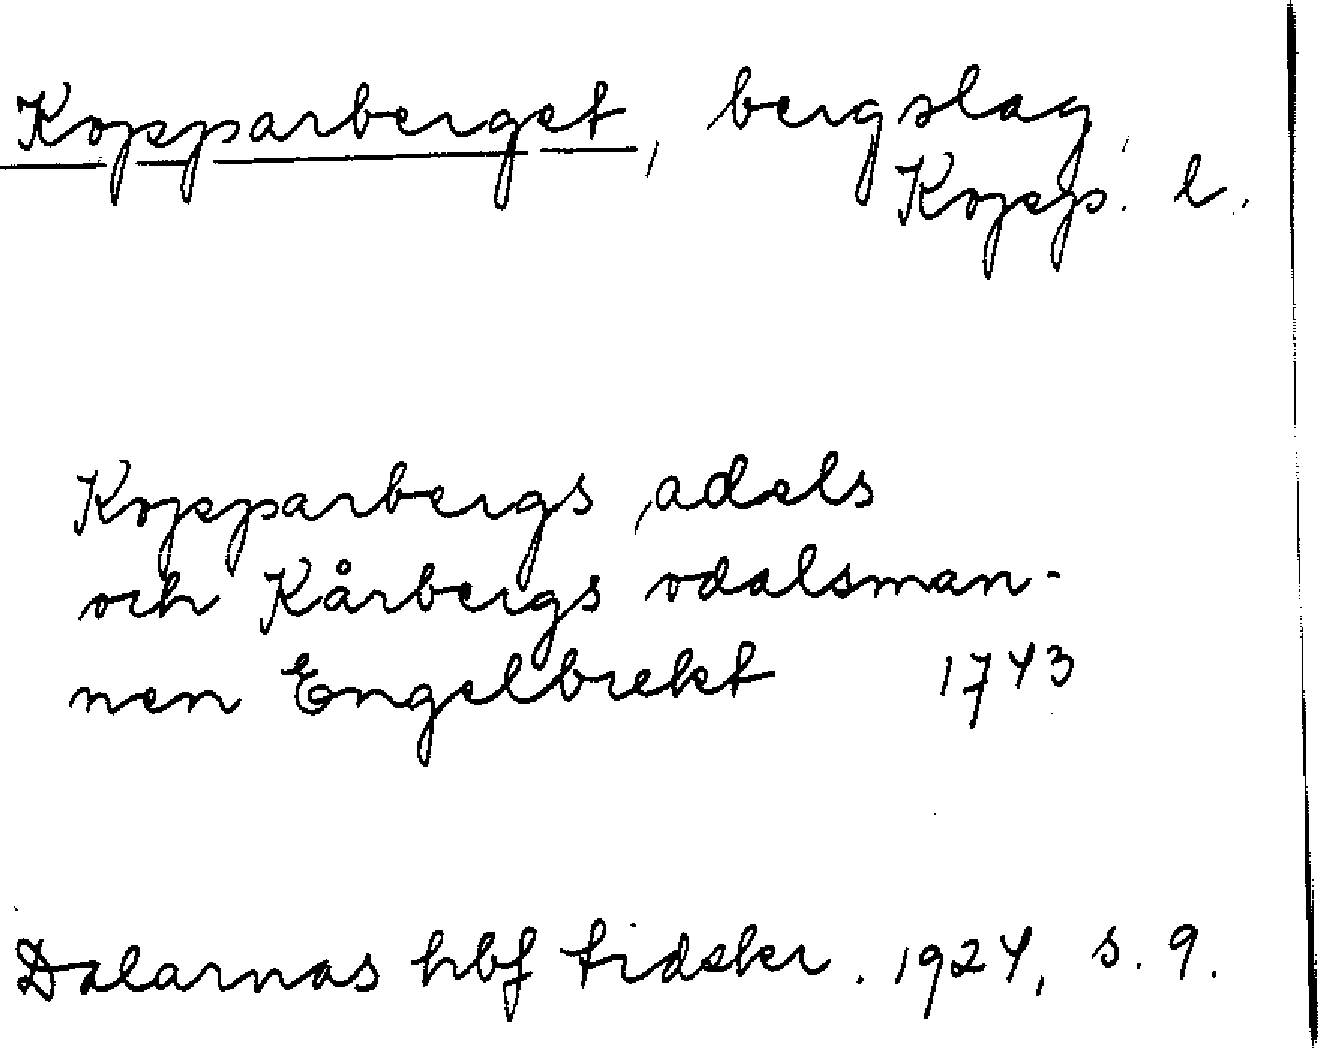 Kopparberget, bergslag
Kopp. l.
Kopparbergs adels
och Kårbergs odalsman-
nen Engelbrekt 1743
Dalarnas hbf tidskr. 1924, s. 9.